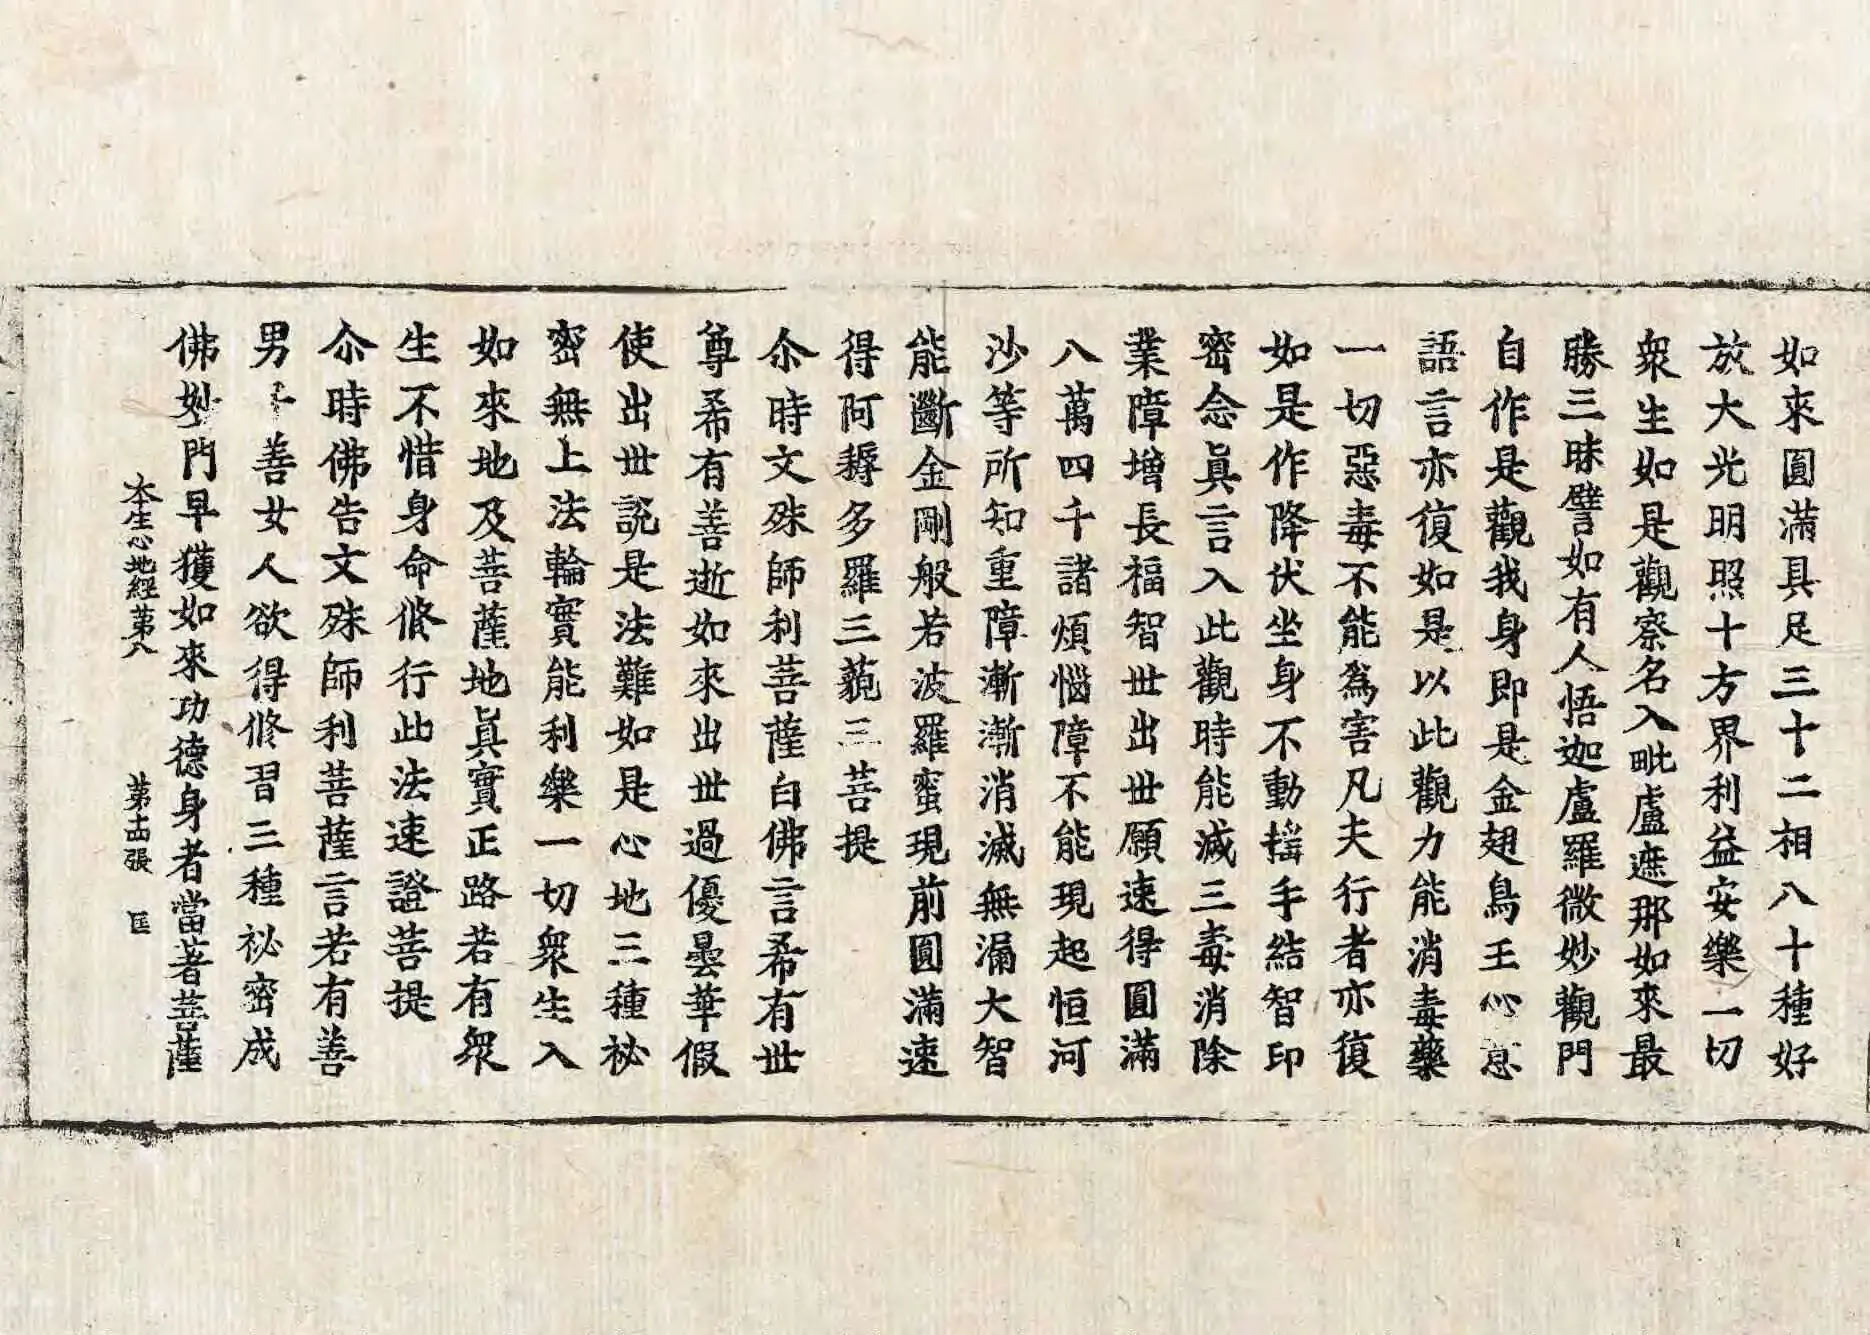 如來圓滿具足三十二相八十種好
放大光明照十方界利益安樂一切
衆生如是觀察名入毗盧遮那如來最
勝三昧譬如有人悟迦盧羅微妙觀門
自作是觀我身即是金翅鳥王心意
語言亦復如是以此觀力能消毒藥
一切惡毒不能爲害凡夫行者亦復
如是作降伏坐身不動揺手結智印
密念眞言入此觀時能滅三毒消除
業障增長福智世出世願速得圓滿
八萬四千諸煩惱障不能現起恒河
沙等所知重障漸漸消滅無漏大智
能斷金剛般若波羅蜜現前圓滿速
得阿耨多羅三藐三菩提
尒時文殊師利菩薩白佛言希有世
尊希有善逝如來出世過優曇華假
使出世說是法難如是心地三種祕
密無上法輪實能利樂一切衆生入
如來地及菩薩地眞實正路若有衆
生不惜身命修行此法速證菩提
尒時佛告文殊師利菩薩言若有善
男子善女人欲得修習三種祕密成
佛妙門早獲如來功德身者當著菩薩
本生心地經第八 第十四張 匡